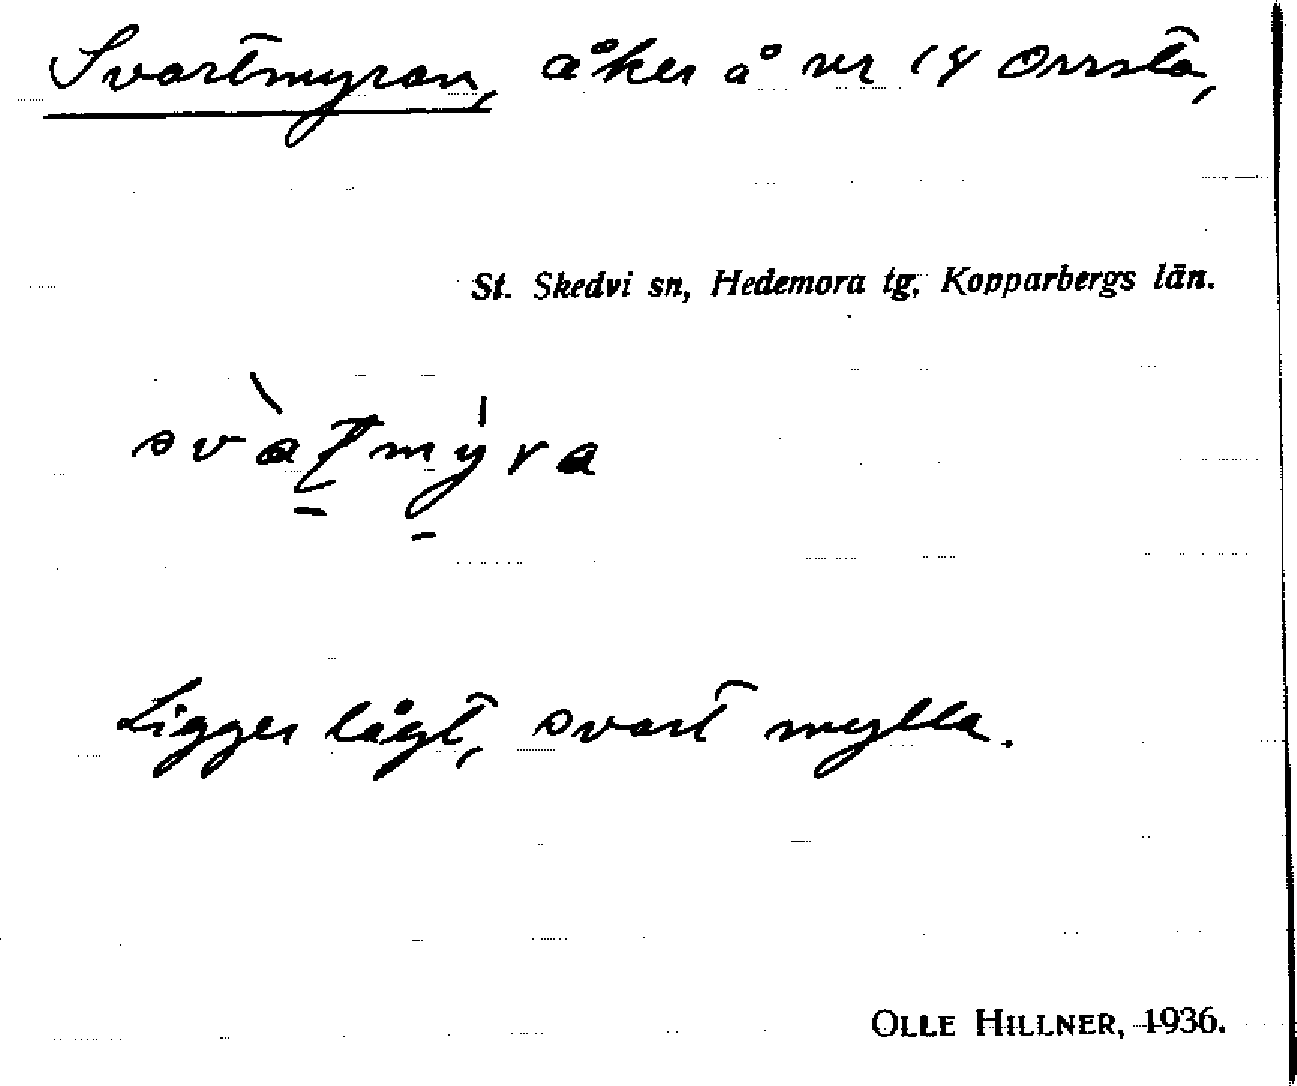 Svartmyran, åker å nr 14 Orrsta,
St. Skedvi sn, Hedemora tg, Kopparbergs län.
Ligger lågt, svart mylla.
OLLE HILLNER, 1936.